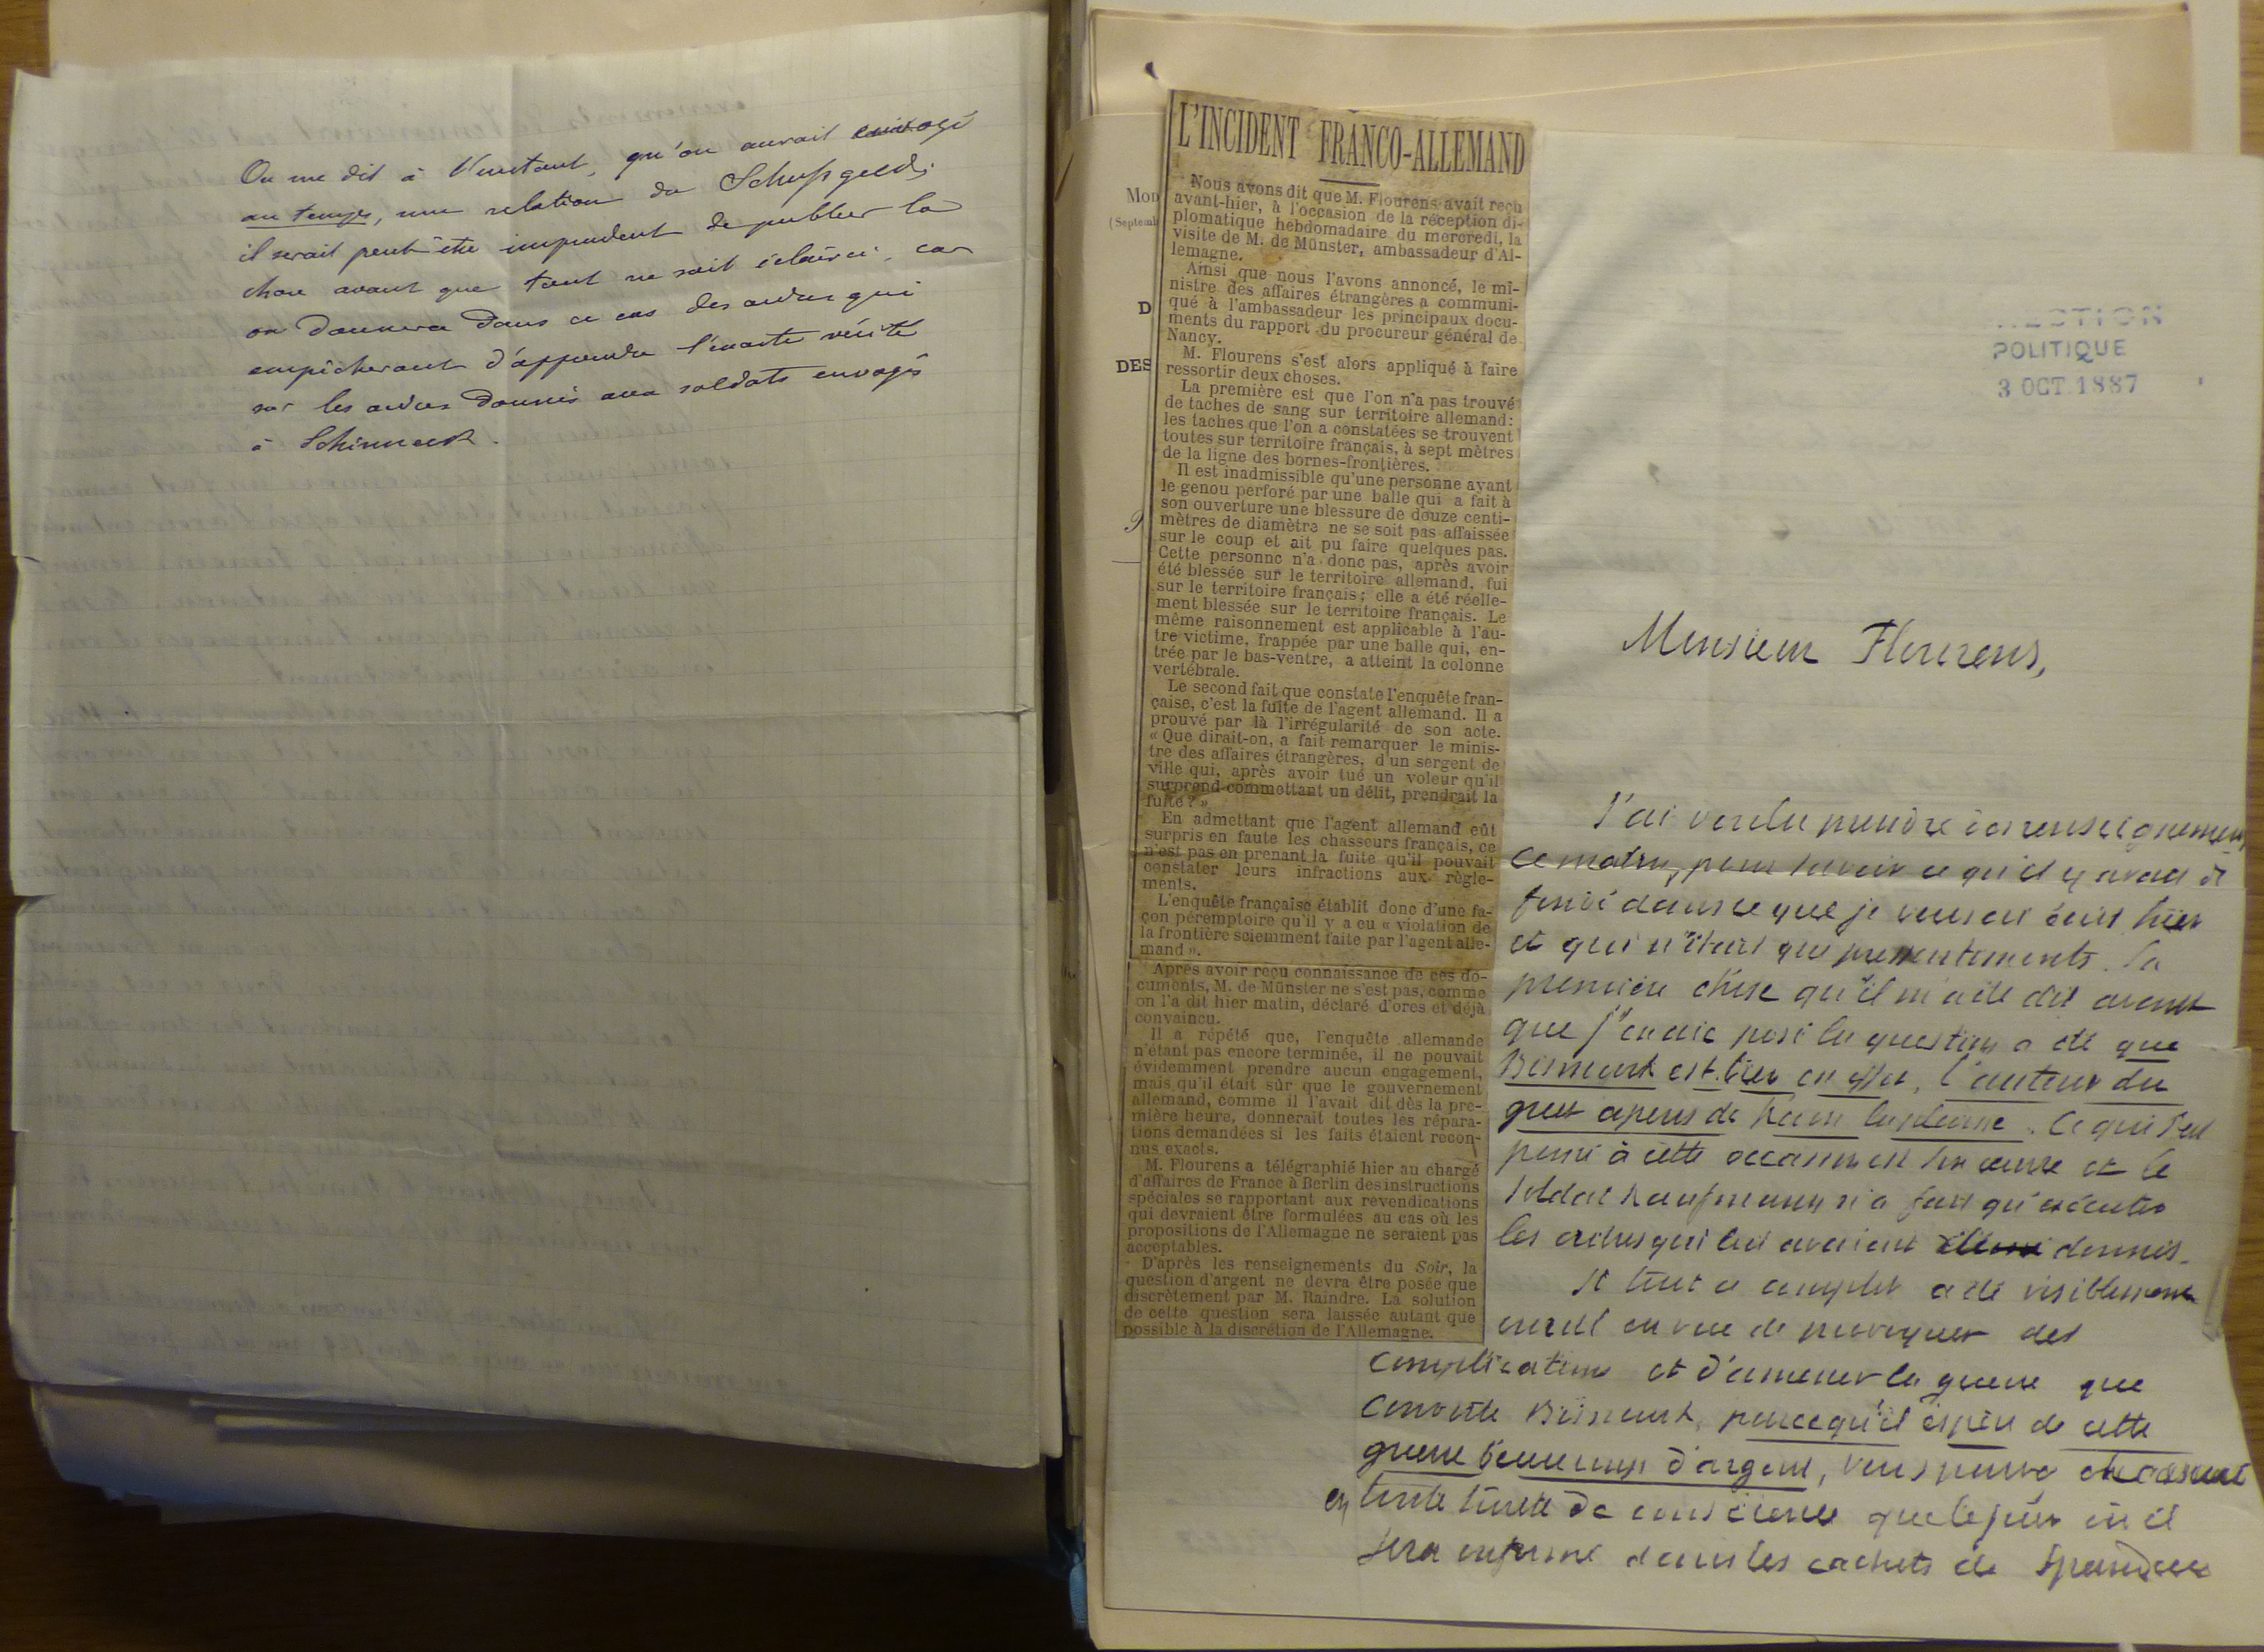 On me dit à l'instant, qu'on aurait envoyé
au temps, une relation du Schupgeld;
il serait peut être imprudent de publier la
chose avant que tout ne soit éclairci, car
on donnera dans ce cas des ordres qui
empêcheront d'apprendre l'exacte vérité
sur les ordres donnés aux soldats envoyés
à Schirmeck.
Mod
(Septemb
D
DES
L'INCIDENT FRANCO-ALLEMAND
Nous avons dit que M. Flourens avait reçu
avant-hier, à l'occasion de la réception di-
plomatique hebdomadaire du mercredi, la
visite de M. de Münster, ambassadeur d'Al-
lemagne.
Ainsi que nous l'avons annoncé, le mi-
nistre des affaires étrangères a communi-
qué à l'ambassadeur les principaux docu-
ments du rapport du procureur général de
Nancy.
M. Flourens s'est alors appliqué à faire
ressortir deux choses.
La première est que l'on n'a pas trouvé
de taches de sang sur territoire allemand:
les taches que l'on a constatées se trouvent
toutes sur territoire français, à sept mètres
de la ligne des bornes-frontières.
Il est inadmissible qu'une personne ayant
le genou perforé par une balle qui a fait à
son ouverture une blessure de douze centi-
mètres de diamètre ne se soit pas affaissée
sur le coup et ait pu faire quelques pas.
Cette personne n'a donc pas, après avoir
été blessée sur le territoire allemand, fui
sur le territoire français; elle a été réelle-
ment blessée sur le territoire français. Le
même raisonnement est applicable à l'au-
tre victime, frappée par une balle qui, en-
trée par le bas-ventre, a atteint la colonne
vertébrale.
Le second fait que constate l'enquête fran-
çaise, c'est la fuite de l'agent allemand. Il a
prouvé par là l'irrégularité de son acte.
« Que dirait-on, a fait remarquer le minis-
tre des affaires étrangères, d'un sergent de
ville qui, après avoir tué un voleur qu'il
surprend commettant un délit, prendrait la
fuite? »
En admettant que l'agent allemand eût
surpris en faute les chasseurs français, ce
n'est pas en prenant la fuite qu'il pouvait
constater leurs infractions aux règle-
ments.
L'enquête française établit donc d'une fa-
çon péremptoire qu'il y a eu « violation de
la frontière sciemment faite par l'agent alle-
mand ».
Après avoir reçu connaissance de ces do-
cuments, M. de Münster ne s'est pas, comme
on l'a dit hier matin, déclaré d'ores et déjà
convaincu.
Il a répété que, l'enquête allemande
n'étant pas encore terminée, il ne pouvait
évidemment prendre aucun engagement,
mais qu'il était sûr que le gouvernement
allemand, comme il l'avait dit dès la pre-
mière heure, donnerait toutes les répara-
tions demandées si les faits étaient recon-
nus exacts.
M. Flourens a télégraphié hier au chargé
d'affaires de France à Berlin des instructions
spéciales se rapportant aux revendications
qui devraient être formulées au cas où les
propositions de l'Allemagne ne seraient pas
acceptables.
D'après les renseignements du Soir, la
question d'argent ne devra être posée que
discrètement par M. Raindre. La solution
de cette question sera laissée autant que
possible à la discrétion de l'Allemagne.
POLITIQUE
3 OCT 1887
Monsieur Flourens,
J'ai voulu prendre des renseignements
ce matin, pour savoir ce qu'il y avait de
fondé dans ce que je vous ai écrit hier
et qui n'était que pressentiments. La
première chose qu'il m'a été dit avant
que j'en aie posé la question a été que
Bismarck est bien en effet, l'auteur du
guet apens de Raon la plaine. Ce qui s'est
passé à cette occasion est son œuvre et le
soldat Kaufmann n'a fait qu'exécuter
les ordres qui lui avaient donnés.
Et tout ce complot a été visiblement
ourdi en vue de provoquer des
complications et d'amener la guerre que
convoite Bismarck, parcequ'il espère de cette
guerre beaucoup d'argent, vous pouvez
en toute sureté de conscience que le jour où il
sera enfermé dans les cachots de Spandau